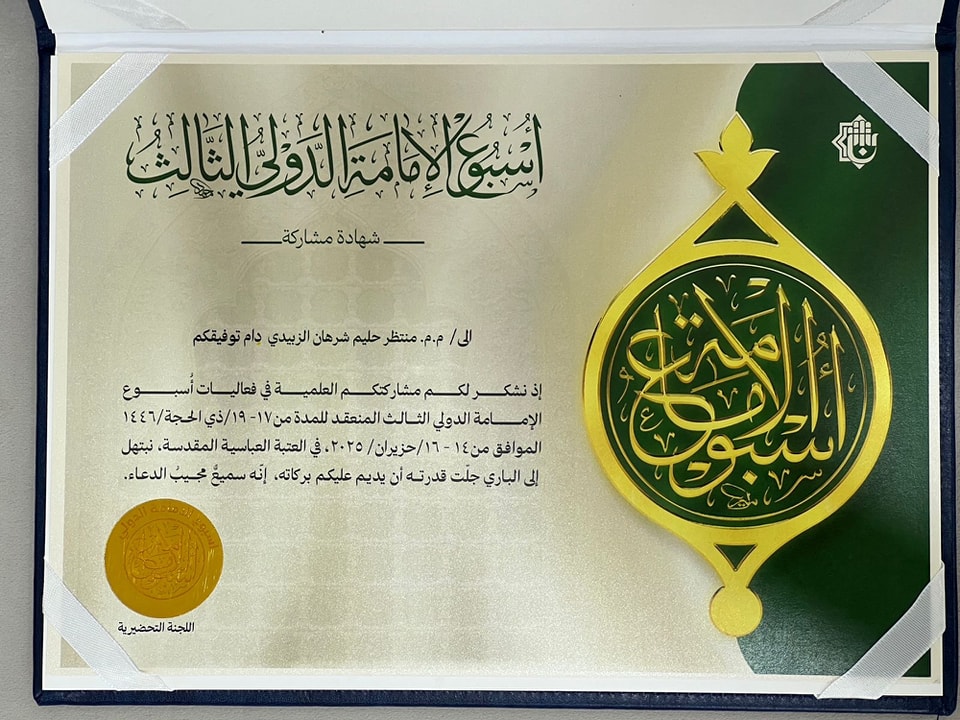 أُسْبُوعُ الإِمَامَةِ الدَّوْلِيُّ الثَّالِثُ
شهادة مشاركة
الى/ م.م. منتظر حليم شرهان الزبيدي دام توفيقكم
إذ نشكـر لكـم مشاركتكـم العلميـة في فعاليـات أُسبـوع
الإمـامـة الدولي الثـالث المنعقـد للمـدة من١٧- ١٩/ذي الحجـة/١٤٤٦
الموافق من١٤ - ١٦/حزيران/ ٢٠٢٥، في العتبة العباسية المقدسة، نبتهل
إلى الباري جلّت قدرتـه أن يديم عليكم بركاته، إنّه سميعٌ مجيبُ الدعاء.
أسبوع الإمامة
اللجنة التحضيرية